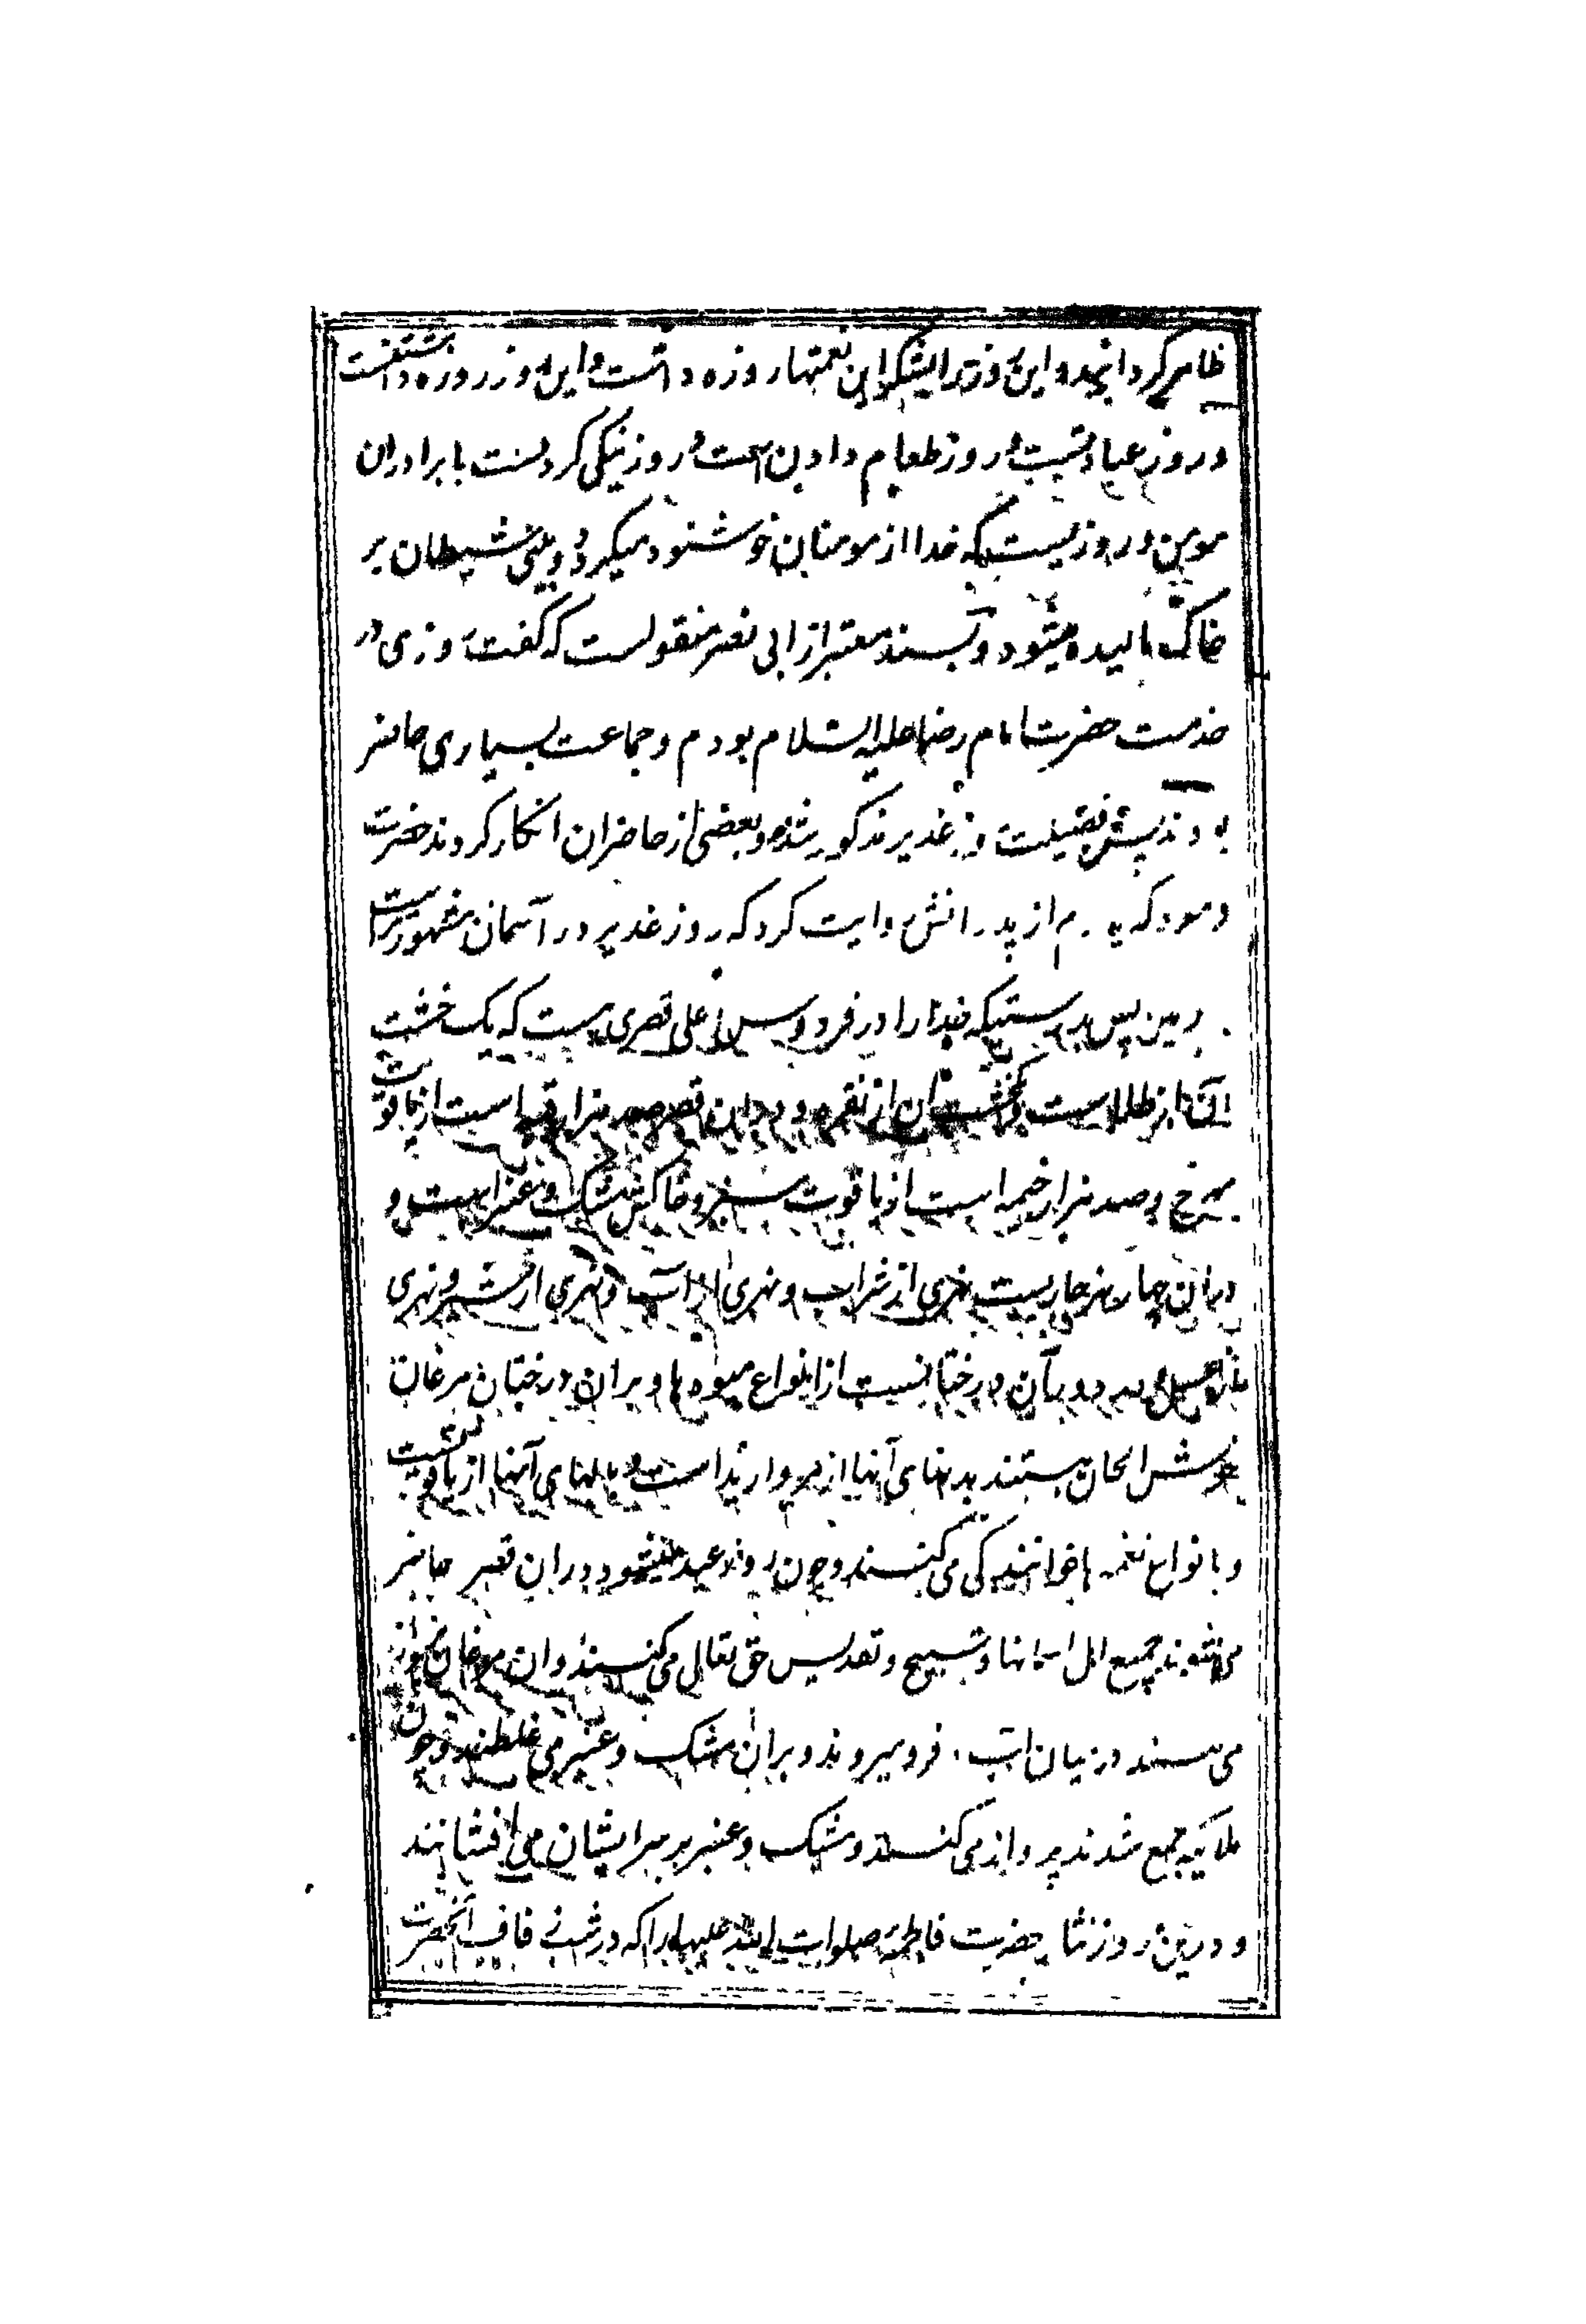 ظاهر گردانید و این روز را بشکر این نعمتها روزه داشت و این روز روزه داشتنست
و روز عبادتست و روز طعام دادن است و روز نیکی کردنست با برادران
مومن و روزیست که خدا از مومنان خوشنود میگردد و بینی شیطان بر
خاک مالیده میشود و بسند معتبر از ابی نصر منقولست که گفت روزی در
خدمت حضرت امام رضا علیه السلام بودم و جماعت بسیاری حاضر
بودند پس فضیلت روز غدیر مذکور شد و بعضی از حاضران انکار کردند حضرت
فرمود که پدرم از پدرانش روایت کرد که روز غدیر در آسمان مشهورتراست
زمین پس بدرستیکه خدا را در فردوس اعلی قصری هست که یک خشت
آن از طلاست و خشت آن از نقره و در آن قصر صد هزار قبه است از یاقوت
سرخ و صد هزار خیمه است از یاقوت سبز و خاکش مشک و عنبر است و
در آن چهار نهر جاریست نهری از شراب و نهری از آب و نهری از شیر و نهری
از عسل و بر دور آن درختانست از انواع میوه ها و بران درختان مرغان
خوش الحان هستند بدنهای آنها از مروارید است و بالهای آنها از یاقوتست
و بانواع نغمه ها خوانندگی می کنند و چون روز عید میشود دران قصر حاضر
می شوند جمیع اهل اسمانها و تسبیح و تقدیس حق تعالی می کنند و ان مرغان بپرواز
می در میان آب فرو میروند و بران مشک و عنبر می غلطند و چون
ملائیکه جمع شدند پرواز می کنند و مشک و عنبر بر سر ایشان می افشانند
و درین روز نثار حضرت فاطمه صلوات الله علیها را که در شب زفاف انحضرت